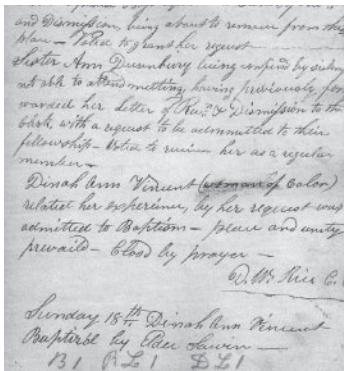 and Dismission, being about to remove from this
place — Voted to grant her request
Sister Ann Dusenbury being confined by sickness
not able to attend meeting, having previously for
warded her letter of Recd. & Dismission to the
Chh, with a request to be admitted to their
fellowship — Voted to receive her as a regular
member —
Dinah Ann Vincent (woman of Color)
related her experience, by her request was
admitted to Baptism — peace and unity
prevaild — Closd by prayer —
D. W. Rice C.
Sunday 18th Dinah Ann Vincent
Baptized by Elder
B1 RL1 DL1